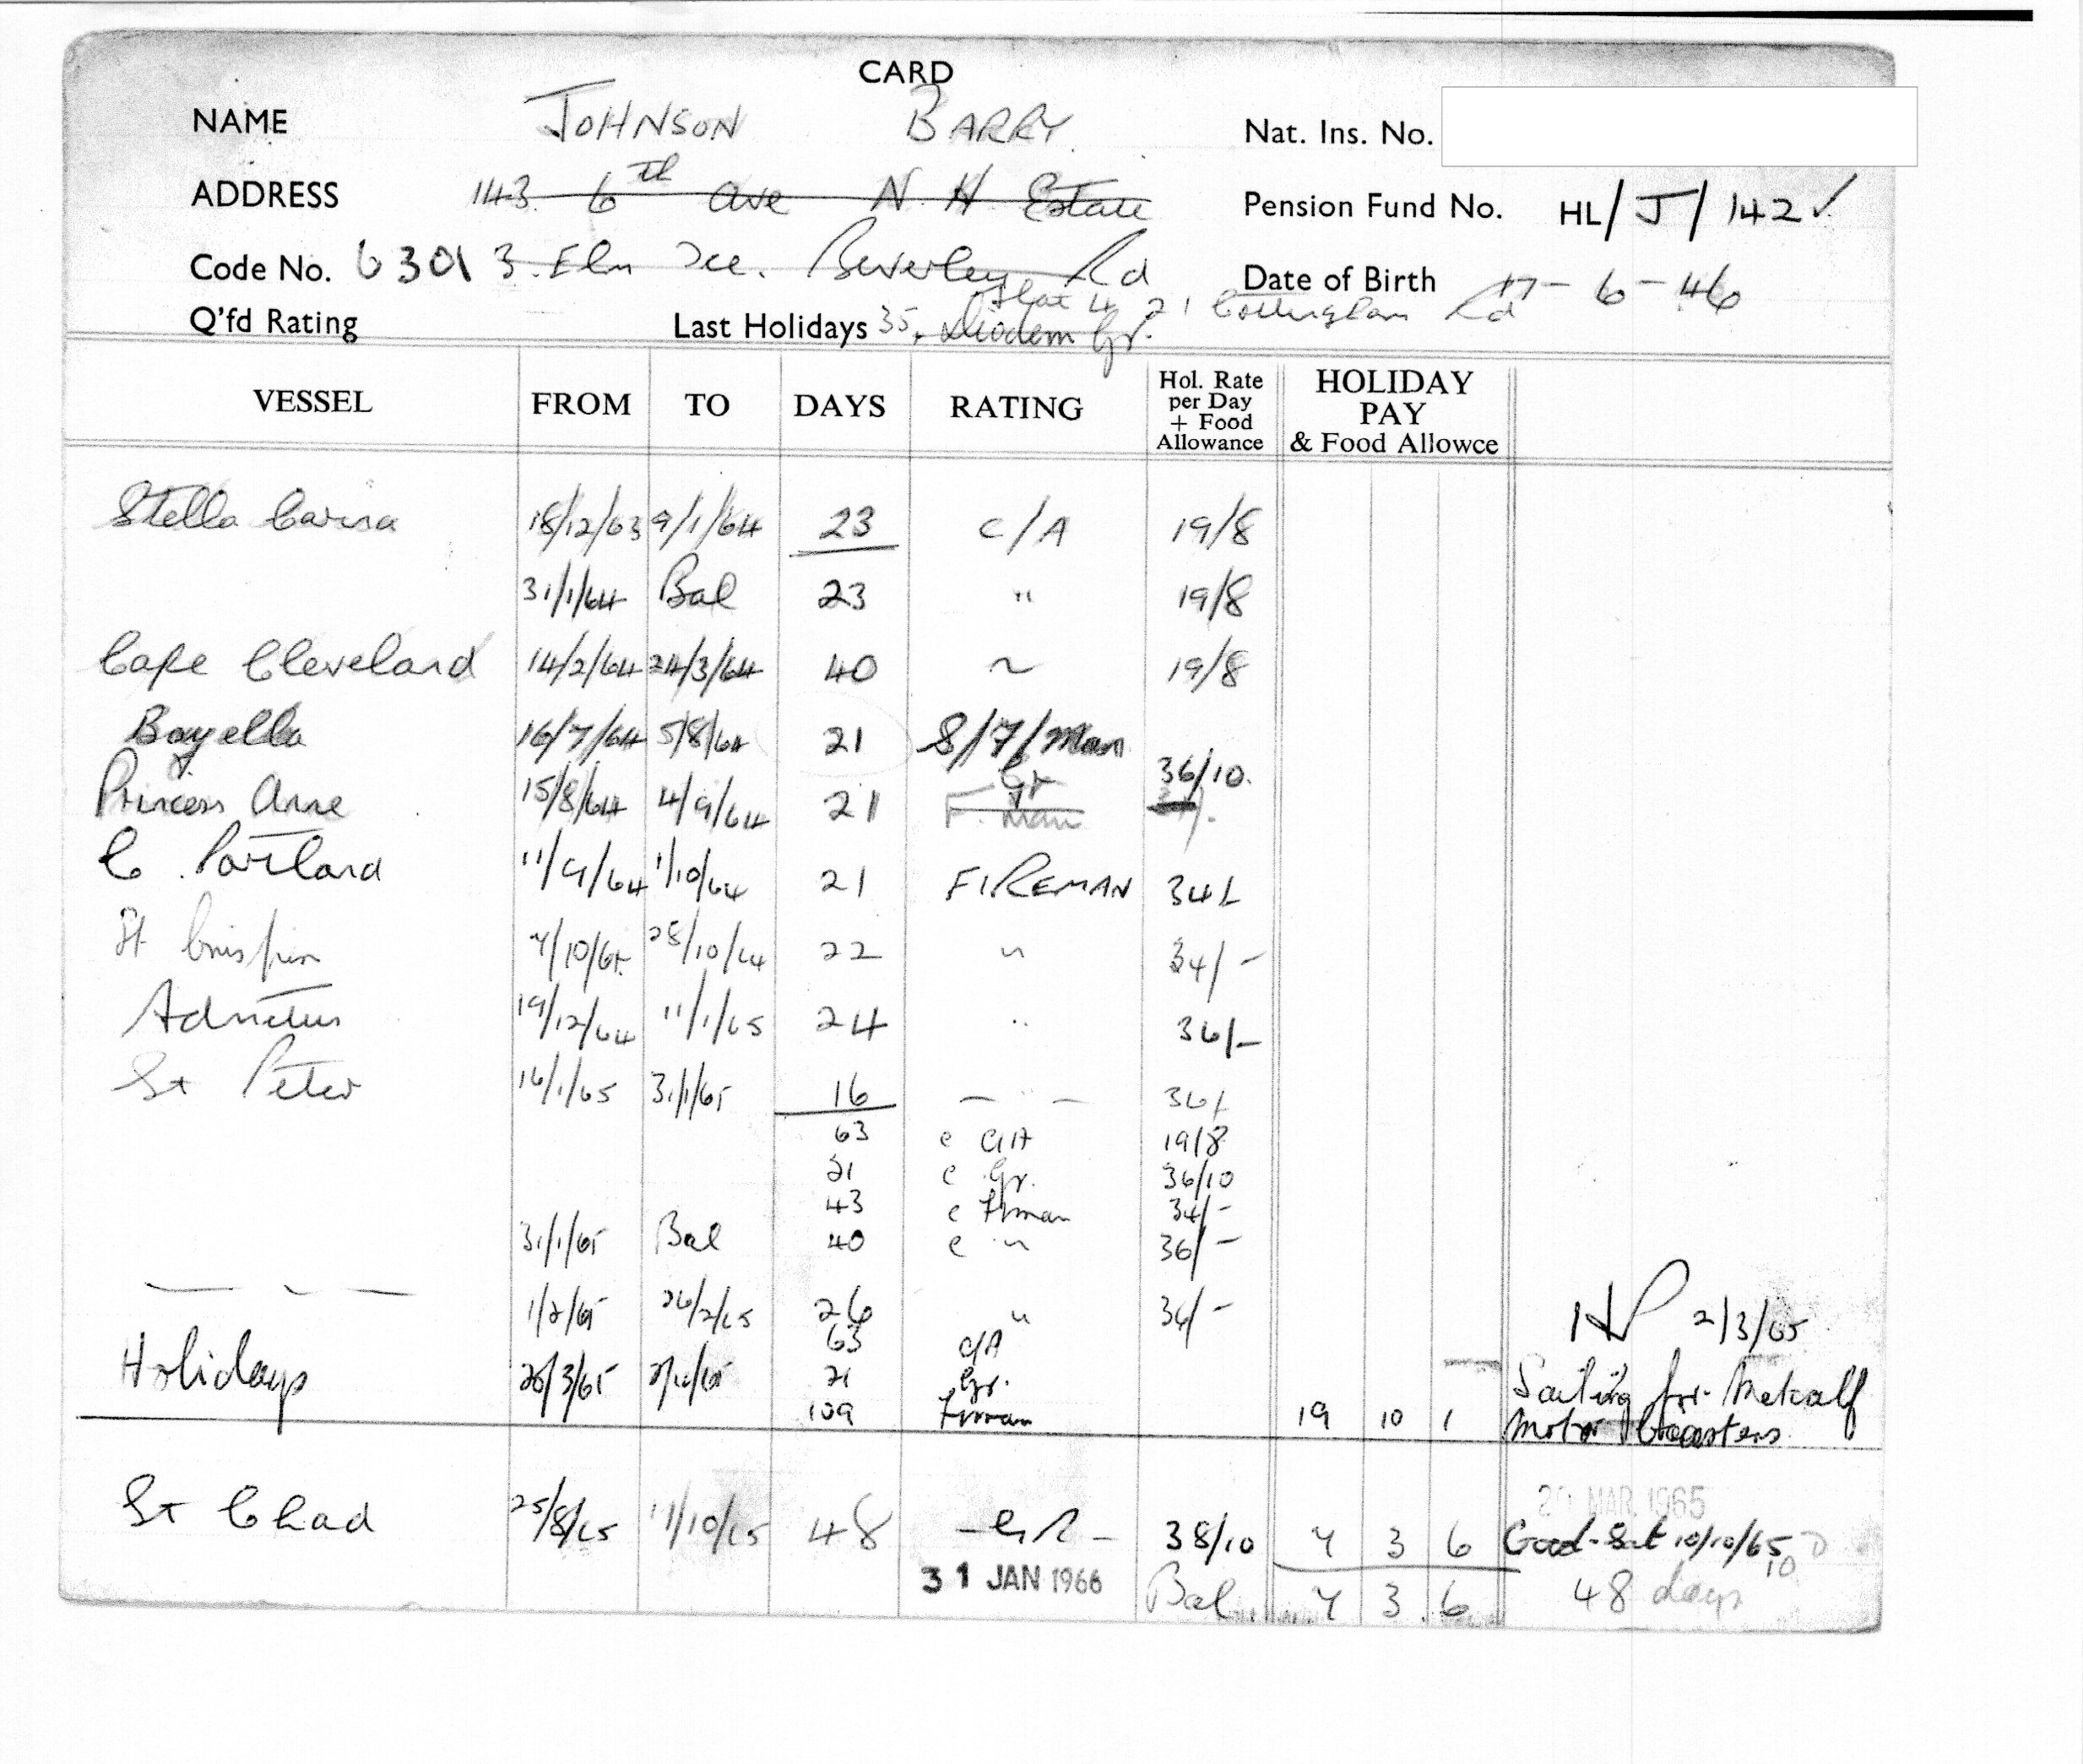 CARD
NAME JOHNSON BARRY Nat. Ins. No.
ADDRESS 143 6th Ave N. H. Estate Pension Fund No. HL/J/142 ✓
Code No. 6301 3. Elm Beverley Rd Date of Birth 17-6-46
Flat 4 21 Cottingham Rd
Q'fd Rating Last Holidays 35, Diadem Gr.
VESSEL FROM TO DAYS RATING Hol. Rate per Day + Food Allowance HOLIDAY PAY & Food Allowce
Stella Carina 18/12/63 9/1/64 23 C/A 19/8
31/1/64 Bal 23 " 19/8
Cape Cleveland 14/2/64 24/3/64 40 ~ 19/8
Bayella 16/7/64 5/8/64 21 S/7/Man
Princess Anne 15/8/64 4/9/64 21 F. man Gr 36/10.
C. Portland 11/9/64 1/10/64 21 FIREMAN 34/-
St Crispin 7/10/64 28/10/64 22 " 34/-
Admetus 19/12/64 11/1/65 24 " 36/-
St Peter 16/1/65 31/1/65 16 — " — 36/-
63 @ C/A 19/8
21 @ Gr. 36/10
43 @ Fman 34/-
31/1/65 Bal 40 @ " 36/-
— " — 1/2/65 26/2/65 26 " 36/- HP 2/3/65
63 C/A
Holidays 26/3/65 21 Gr. Sailing for Metcalf
109 Fman 19 10 1 Motor Coasters
20 MAR. 1965
St Chad 25/8/65 11/10/65 48 - GR - 38/10 7 3 6 Good - Sat 10/10/65
10
31 JAN 1966 Bal 7 3 6 48 days